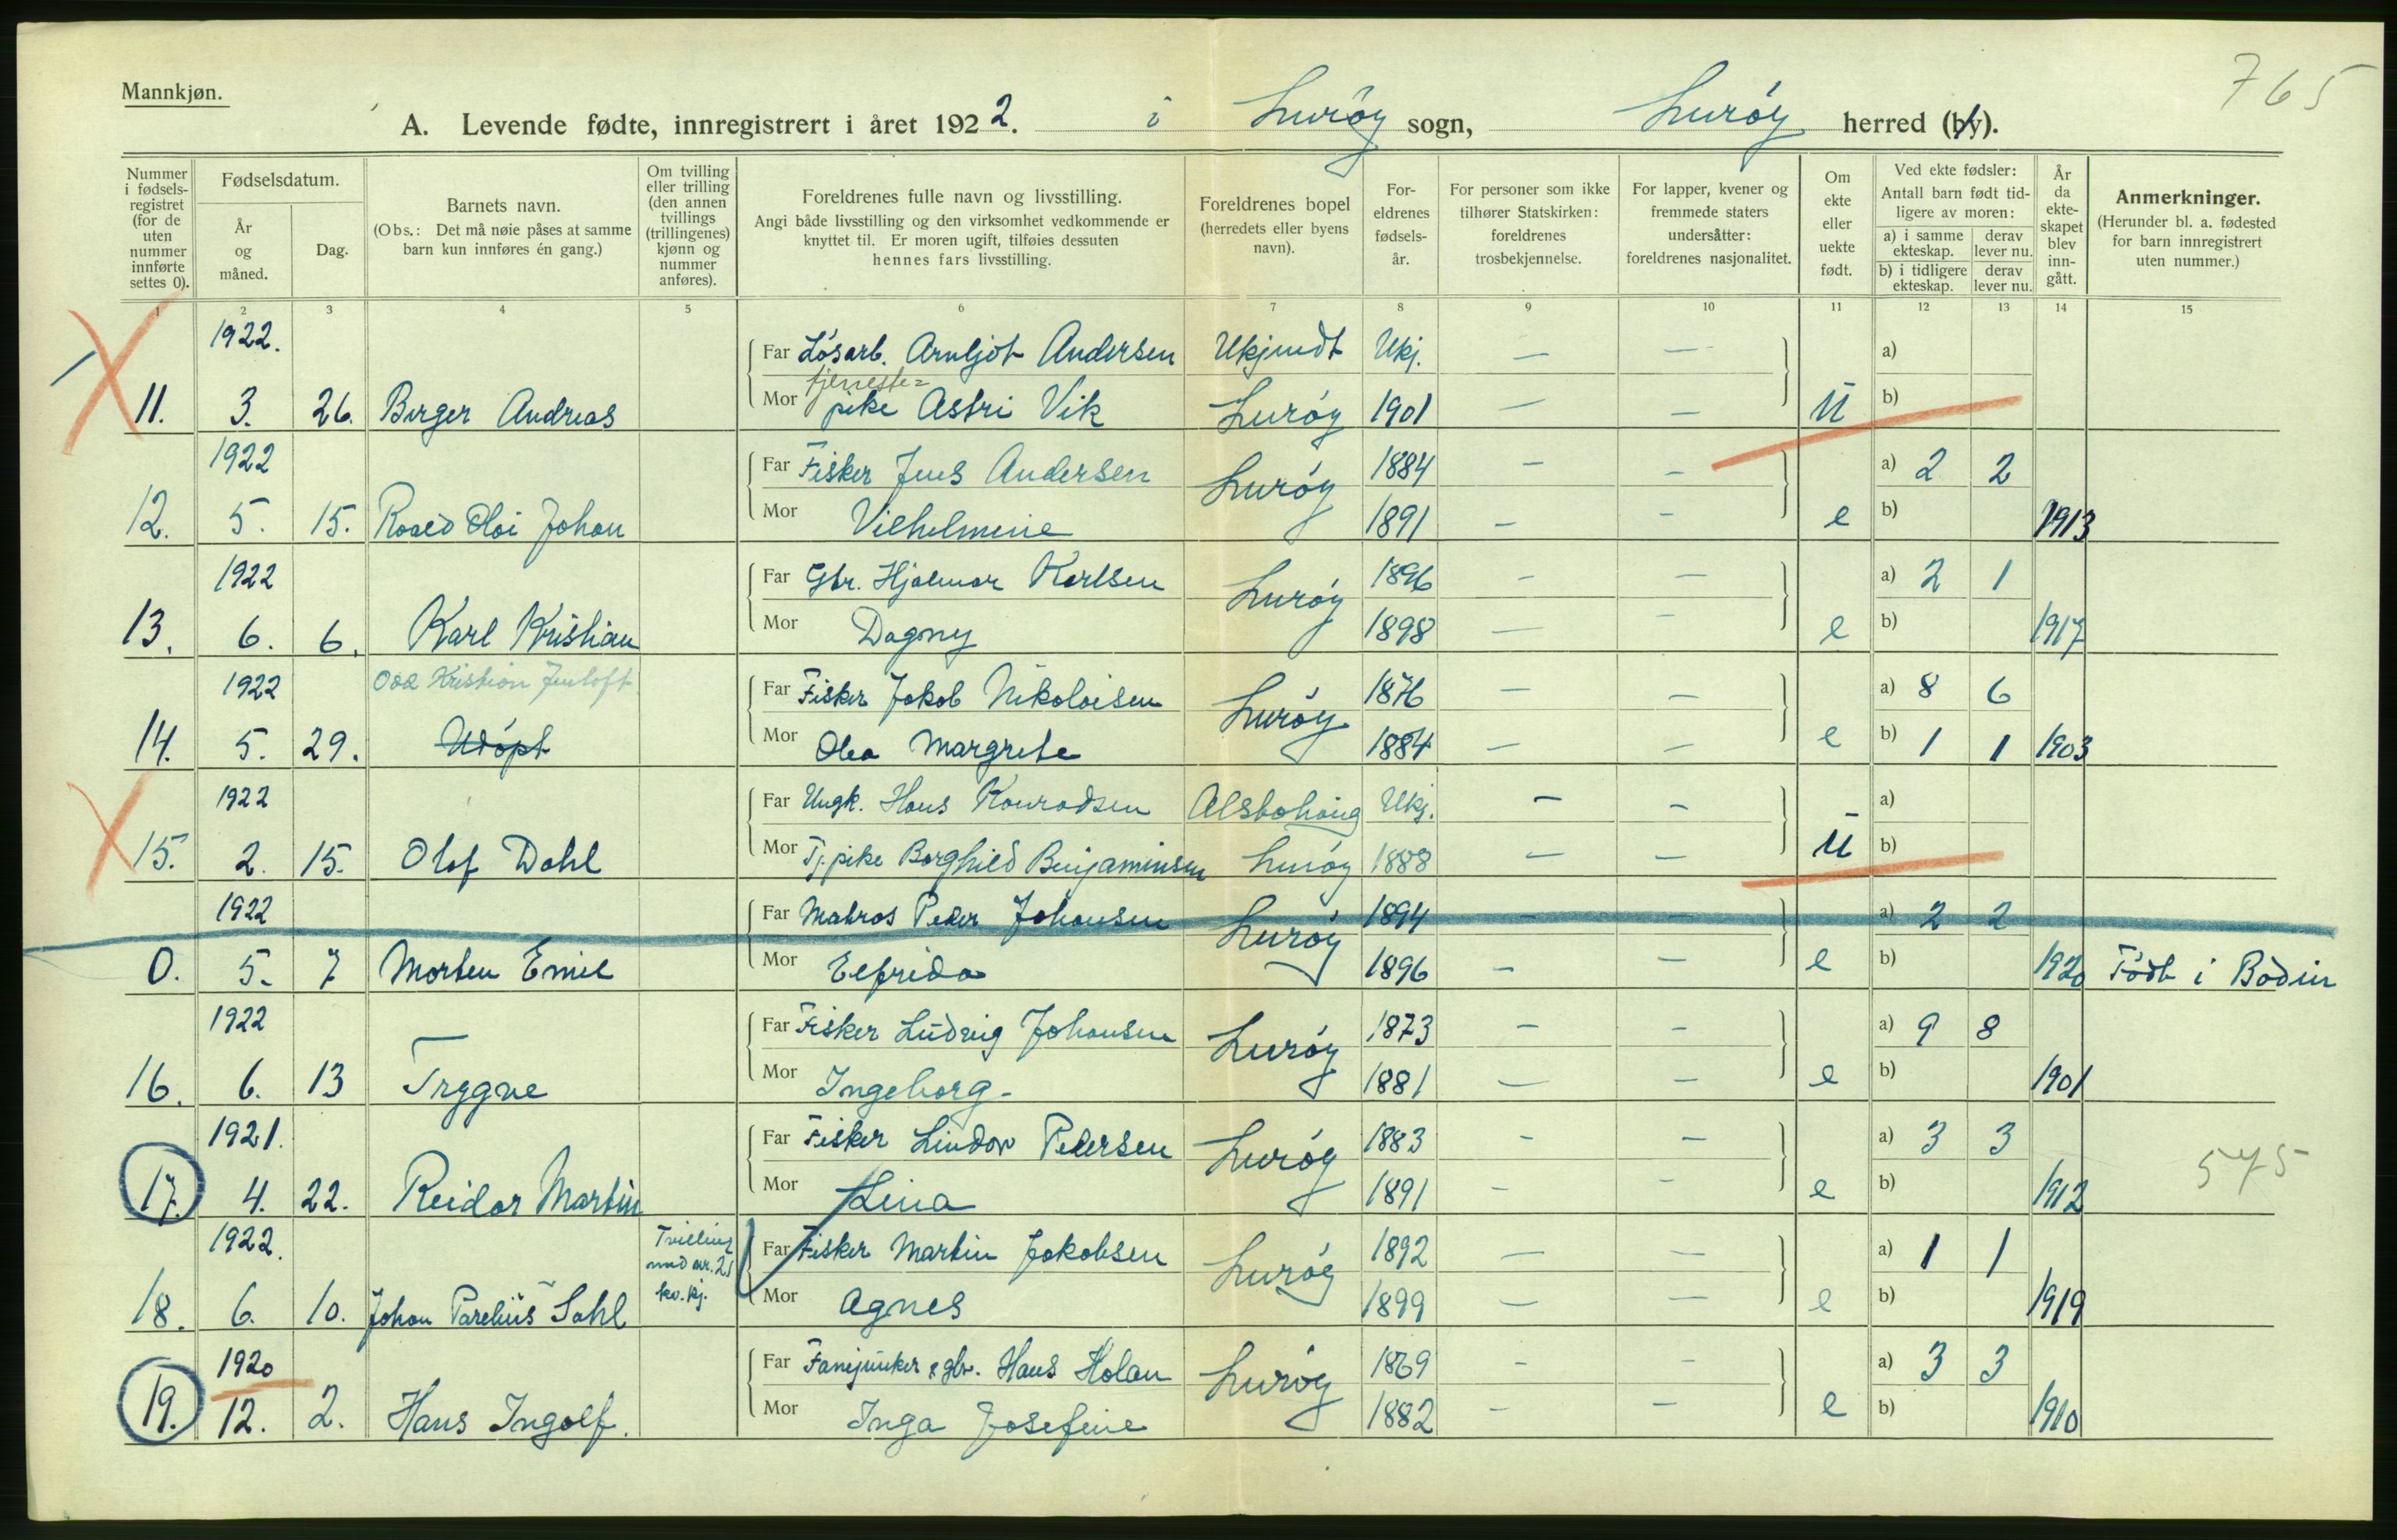 765
Mannkjøn.
A. Levende fødte, innregistrert i året 1922. i Lurøy sogn, Lurøy herred (by).
Nummer i fødsels-registret (for de uten nummer innførte settes 0).
Fødselsdatum.
År og måned.
Dag.
Barnets navn.
(Obs.: Det må nøie påses at samme barn kun innføres én gang.)
Om tvilling eller trilling (den annen tvillings (trillingenes) kjønn og nummer anføres).
Foreldrenes fulle navn og livsstilling.
Angi både livsstilling og den virksomhet vedkommende er knyttet til. Er moren ugift, tilføies dessuten hennes fars livsstilling.
Foreldrenes bopel (herredets eller byens navn).
For-eldrenes fødsels-år.
For personer som ikke tilhører Statskirken: foreldrenes trosbekjennelse.
For lapper, kvener og fremmede staters undersåtter: foreldrenes nasjonalitet.
Om ekte eller uekte født.
Ved ekte fødsler: Antall barn født tid-ligere av moren:
a) i samme ekteskap. derav lever nu.
b) i tidligere ekteskap. derav lever nu.
År da ekte-skapet blev inn-gått.
Anmerkninger.
(Herunder bl. a. fødested for barn innregistrert uten nummer.)
1 2 3 4 5 6 7 8 9 10 11 12 13 14 15
1922. Far Løsarb. Arnljot Andersen Ukjendt Ukj. — — a)
tjeneste=
11. 3. 26. Birger Andreas Mor pike Astri Vik Lurøy 1901 — — U b)
1922 Far Fisker Jens Andersen Lurøy 1884 — — a) 2 2
12. 5. 15. Roald Johan Mor Vilhelmine 1891 — — e b) 1913
1922 Far Gbr. Hjalmar Karlsen Lurøy 1896 — — a) 2 1
13. 6. 6. Karl Kristian Mor Dagny 1898 — — e b) 1917
1922 Odd Kristian Jentoft Far Fisker Jakob Nikolaisen Lurøy 1876 — — a) 8 6
14. 5. 29. Udøpt Mor Olea Margrete 1884 — — e b) 1 1 1903
1922 Far Ungk. Hans Konradsen Alstahaug Ukj. — — a)
15. 2. 15. Olof Dahl Mor Tj.pike Borghild Benjaminsen Lurøy 1888 — — U b)
1922 Far Matros Peder Johansen Lurøy 1894 — — a) 2 2
0. 5. 7 Morten Emil Mor Elfrida 1896 — — e b) 1920 Født i Bodin
1922 Far Fisker Ludvig Johansen Lurøy 1873 — — a) 9 8
16. 6. 13 Trygve Mor Ingeborg 1881 — — e b) 1901
1921. Far Fisker Lindor Pedersen Lurøy 1883 — — a) 3 3
17. 4. 22. Reidar Martin Mor Lina 1891 — — e b) 1912 575
1922. Tvilling med nr. 21 kv.kj. Far Fisker Martin Jakobsen Lurøy 1892 — — a) 1 1
18. 6. 10. Johan Parelius Dahl Mor Agnes 1899 — — e b) 1919
1920 Far Fanejunker & gbr. Hans Holan Lurøy 1869 — — a) 3 3
19. 12. 2. Hans Ingolf. Mor Inga Josefine 1882 — — e b) 1910